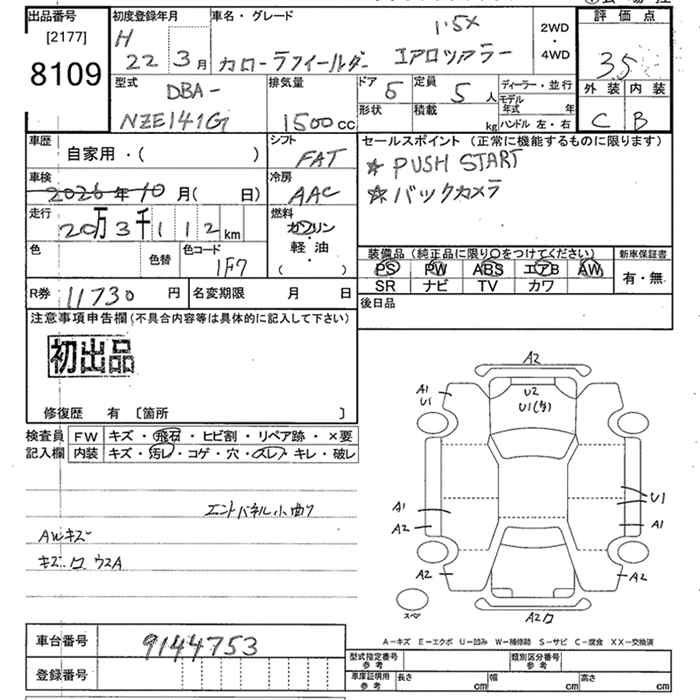 出品番号
[2177]
8109
初度登録年月
H
22 3月
車名・グレード
1.5X
カローラフィールダー エアロツアラー
2WD
・
4WD
評価点
3.5
外装 内装
C B
型式
DBA-
NZE141G
排気量
1500cc
ドア 5
定員 5人
形状
積載 kg
ディーラー・並行
モデル年式 年
ハンドル 左・右
車歴
自家用・( )
シフト
FAT
車検
2026年10月( 日)
冷房
AAC
走行
20万3千112km
燃料
ガソリン
・
軽・油
( )
色
色替
色コード
1F7
R券 11730円
名変期限 月 日
セールスポイント (正常に機能するものに限ります)
☆ PUSH START
☆ バックカメラ
装備品(純正品に限り○をつけてください)
PS PW ABS エアB AW
SR ナビ TV カワ
新車保証書
有・無
後日品
注意事項申告欄(不具合内容等は具体的に記入して下さい)
初出品
修復歴 有 〔箇所 〕
検査員記入欄
FW キズ・飛石・ヒビ割・リペア跡・×要
内装 キズ・汚レ・コゲ・穴・スレ・キレ・破レ
エンドパネル小曲り
AWキズ
キズ・ワ ウスA
A2
A1
U1
U2
A1
A2
U1
A1
A2
A2
A2ワ
スペア
A−キズ E−エクボ U−凹み W−補修跡 S−サビ C−腐食 XX−交換済
車台番号 9144753
登録番号
型式指定番号 参考
類別区分番号 参考
車庫証明用 参考
長さ cm
幅 cm
高さ cm